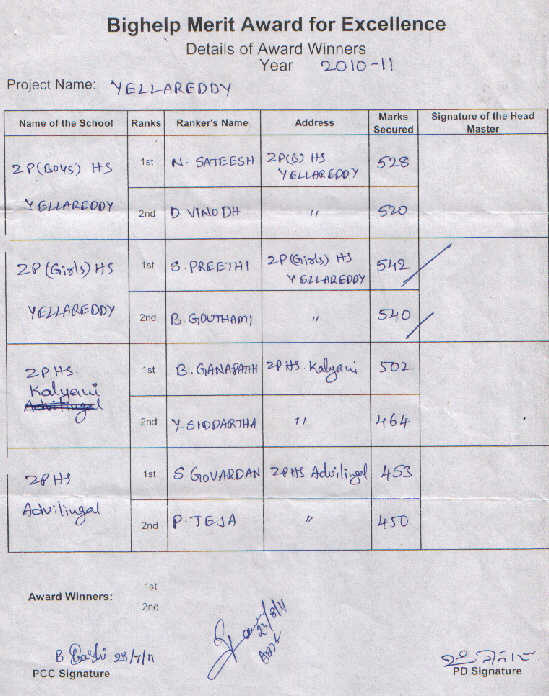 Bighelp Merit Award for Excellence
Details of Award Winners
Year 2010-11
Project Name: YELLAREDDY
Name of the School Ranks Ranker's Name Address Marks Secured Signature of the Head Master
ZP(Boys) HS YELLAREDDY 1st N. SATEESH ZP(B) HS YELLAREDDY 528
2nd D VINODH " 520
ZP(Girls) HS YELLAREDDY 1st S. PREETHI ZP(Girls) HS YELLAREDDY 542
2nd B. GOUTHAMI " 540
ZPHS. Kalyani Advilingal 1st B. GANAPATH ZPHS. Kalyani 502
2nd Y SIDDARTHA " 464
ZPHS Advilingal 1st S GOVARDAN ZPHS Advilingal 453
2nd P. TEJA " 450
Award Winners: 1st
2nd
23/7/11
PCC Signature
PD Signature